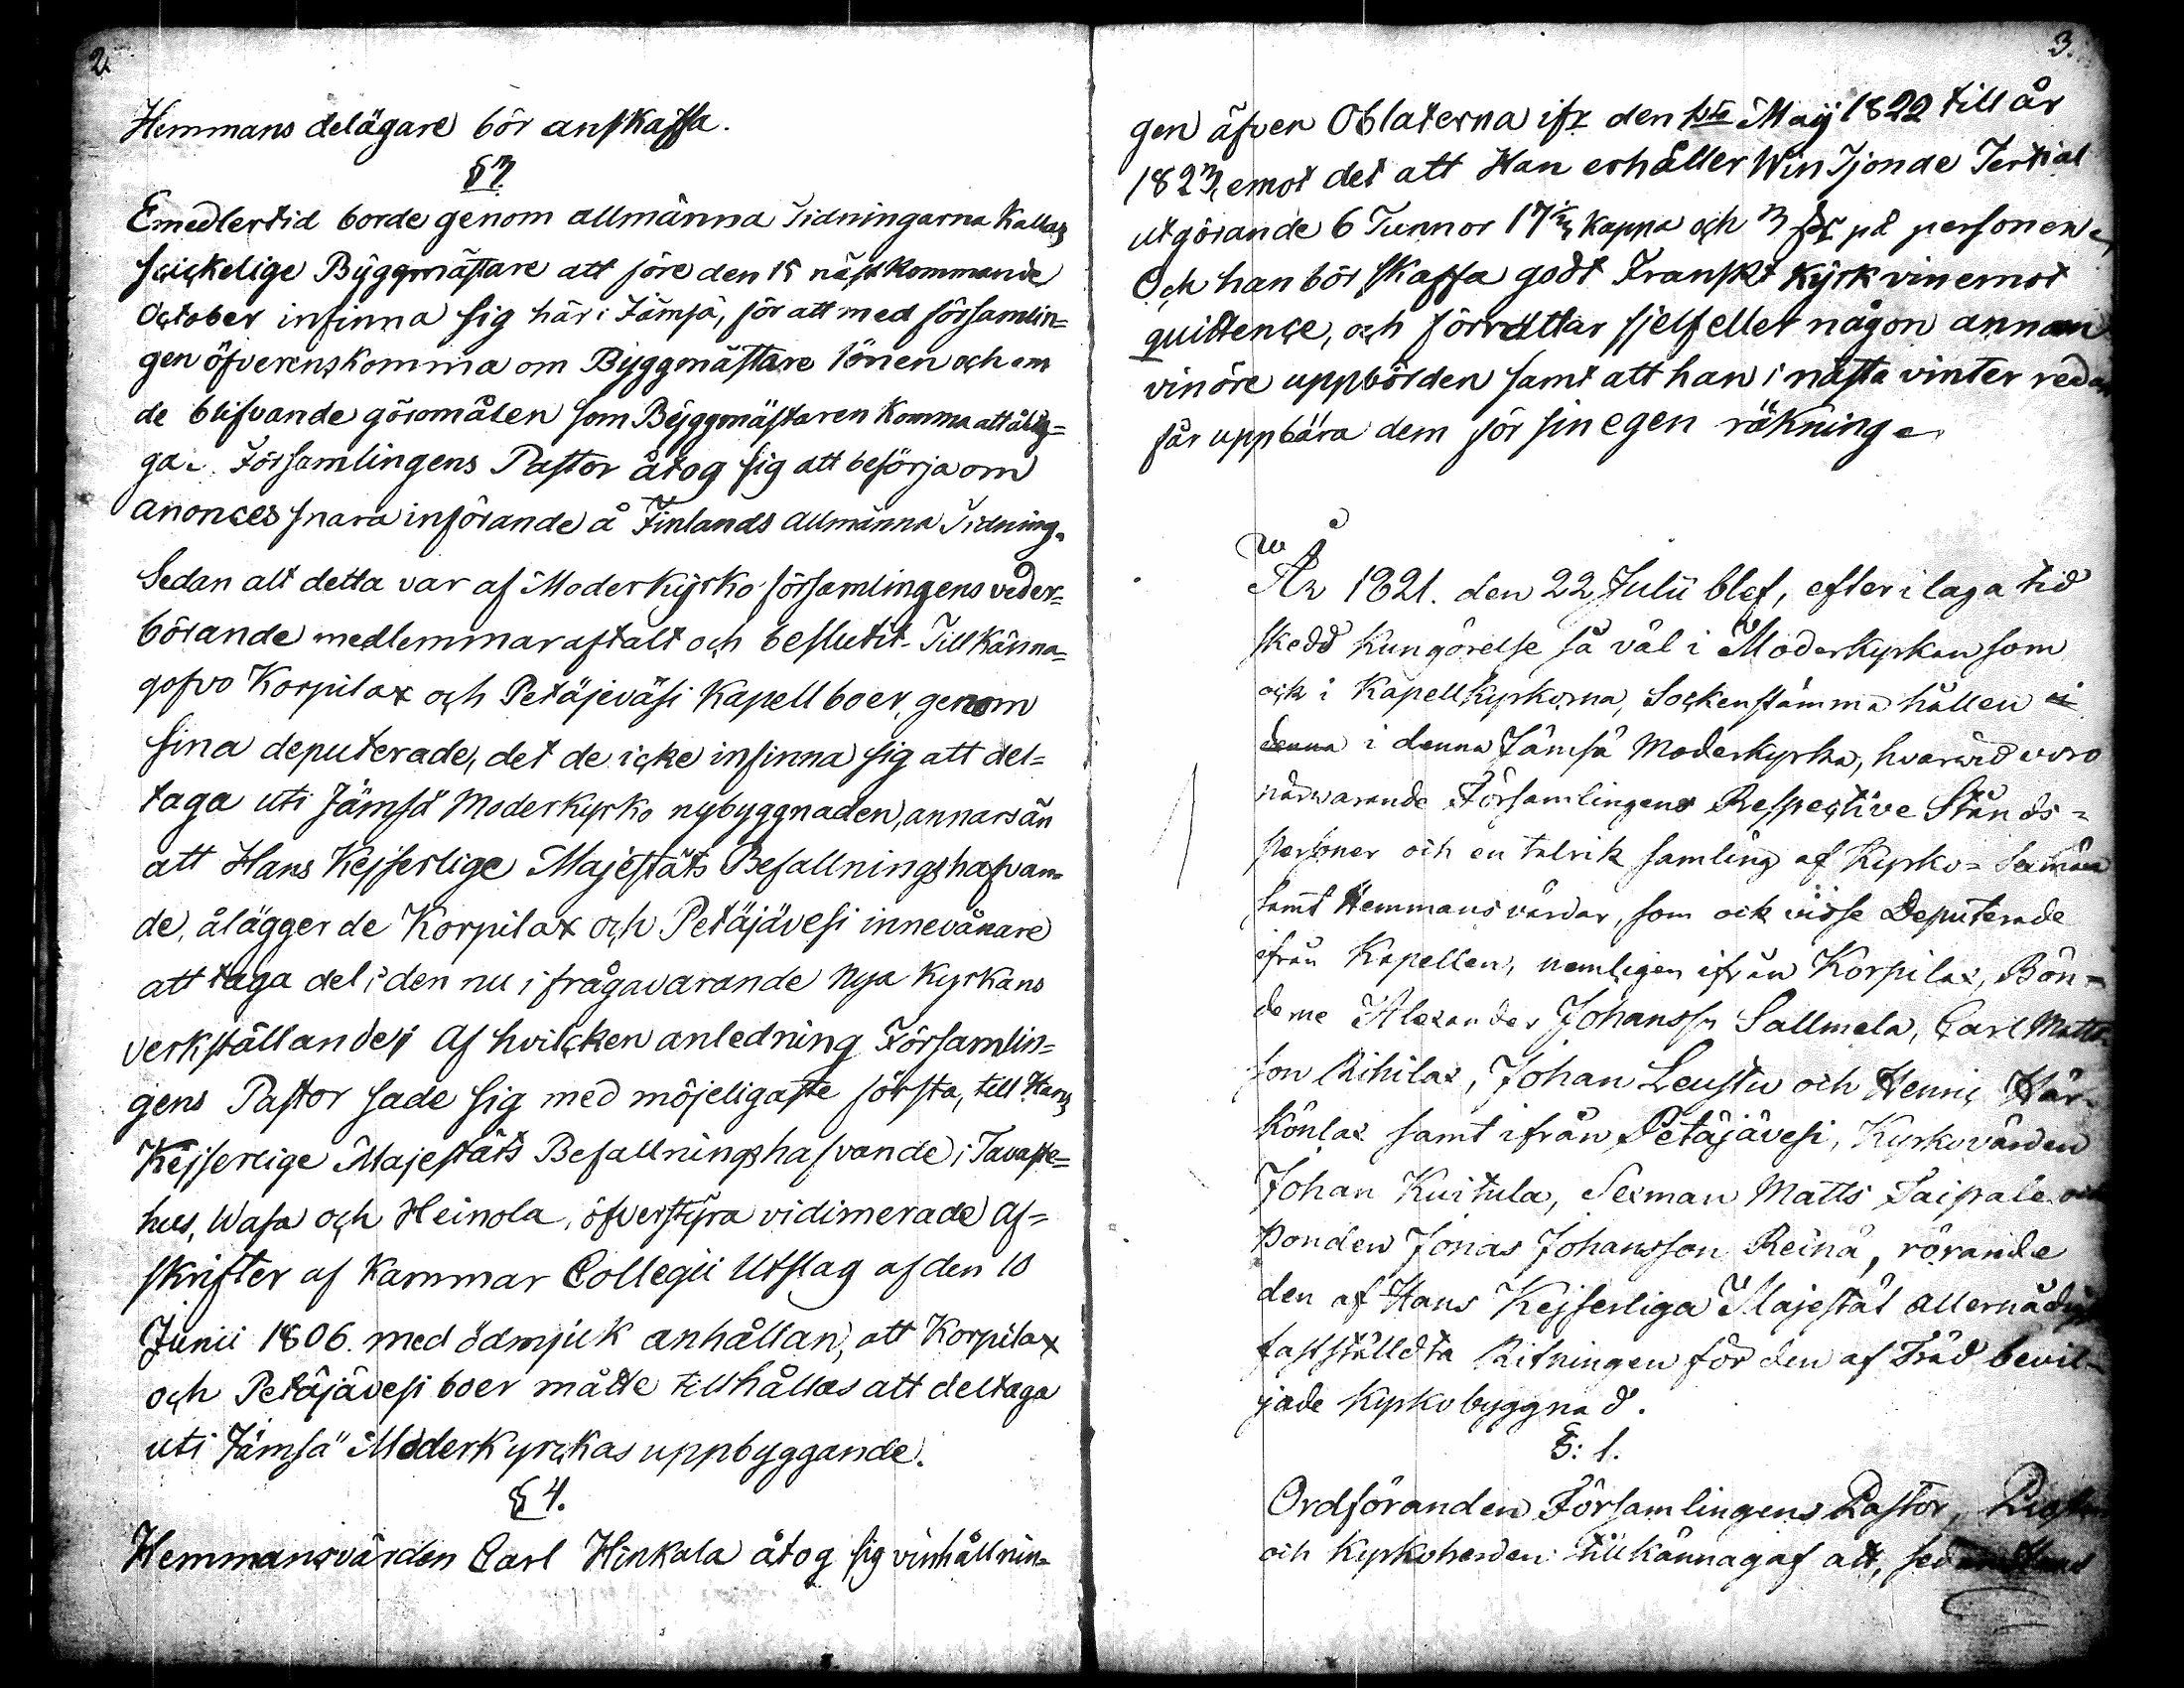 2.
Hemmans delägare bör anskaffa.
§ 3.
Emedlertid borde genom allmänna Tidningarna Kallas
skickelige Byggmästare att före den 15 nästkommande
October infinna sig här i Jämsä, för att med församlin=
gen öfverenskomma om Byggmästare lönen och om
de blifvande göromålen som Byggmästaren komma att ålig=
ga. Församlingens Pastor åtog sig att besörja om
anonces snara införande å Finlands Allmänna Tidning.
Sedan alt detta var af Moderkyrko församlingens veder=
börande medlemmar aftalt och beslutit. Till Känna=
gofvo Korpilax och Petäjeväsi Kapell boer, genom
sina deputerade, det de icke infinna sig att del=
taga uti Jämsä Moderkyrko nybyggnaden, annars än
att Hans Kejserlige Majestäts Befallningshafvan=
de, ålägger de Korpilax och Petäjävesi innevånare
att taga del i den nu i frågavarande Nya Kyrkans
verkställande; Af hvilcken anledning Församlin=
gens Pastor sade sig med möjeligaste första, till Hans
Kejserlige Majestäts Befallningshafvande i Tavaste=
hus, Wasa och Heinola, öfverstyra vidimerade Af=
skrifter af Kammar Collegii Utslag af den 10
Junii 1806. med ödmjuk anhållan, att Korpilax
och Petäjävesi boer måtte tillhållas att deltaga
uti Jämsä Moderkyrckas uppbyggande.
§ 4.
Hemmansvärden Carl Hinkala åtog sig vinhållnin=
3.
gen äfven Oblaterna ifr den 1sta Maij 1822 till år
1823, emot det att Han erhåller Win Tjonde Tertial
utgörande 6 Tunnor 17 1/4 Kappa och 3 på personen,
Och han bör skaffa godt Franskt Kyrk vin emot
quittence, och förrättar sjelf eller någon annan
vinöre uppbörden samt att han i nästa vinter redan
får uppbära dem för sin egen räkning.
År 1821. den 22 Julii blef, efter i laga tid
skedd Kungörelse så väl i Moderkyrkan som
ock i Kapellkyrkorna, Sockenstämma hållen i
denna i denna Jämsä Moderkyrka, hvarvid voro
närwarande Församlingens Respective Stånds=
Personer och en talrik samling af Kyrko= Sexmän
samt Hemmansvärdar, som ock visse Deputerade
ifrån Kapellen, nemligen ifrån Korpilax, Bön=
derne Alexander Johansson Sallmela, Carl Matts=
son Rihilax, Johan Leustu och Henric Här=
könlax samt ifrån Petäjävesi, Kyrkovärden
Johan Kuitula, Sexman Matts Saipale och
Bonden Jonas Johansson Reinä, rörande
den af Hans Kejserliga Majestät allernådigst
fastställdta Ritningen för den af Träd bevil=
jade Kyrkobyggnad.
§: 1.
Ordföranden Församlingens Pastor,
och Kyrkoherden tillkännagaf att, sedan Hans